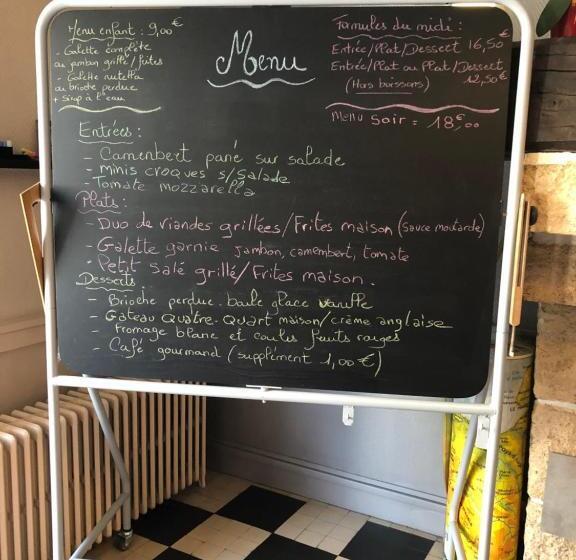 Menu enfant : 9,00€
- Galette complète
ou jambon grillé / frites
- Galette nutella
ou brioche perdue
+ sirop à l'eau
Menu
Formules du midi :
Entrée/Plat/Dessert 16,50€
Entrée/Plat ou Plat/Dessert
12,50€
(Hors boissons)
Menu Soir = 18€,00
Entrées :
- Camenbert pané sur salade
- minis croques s/salade
- Tomate mozzarella
Plats :
- Duo de viandes grillées/Frites maison (sauce moutarde)
- Galette garnie jambon, camembert, tomate
- Petit Salé grillé/Frites maison.
Desserts
- Brioche perdue. boule glace vanille
- Gâteau Quatre-Quart maison/crème anglaise
- Fromage blanc et coulis fruits rouges
- Café gourmand (supplément 1,00€)